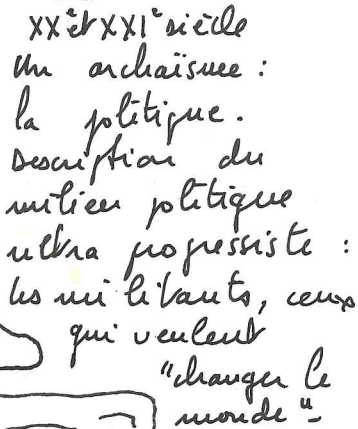 XX et XXIe siècle
Un archaïsme :
la politique.
Description du
milieu politique
ultra progressiste :
les militants, ceux
qui veulent
"changer le
monde".